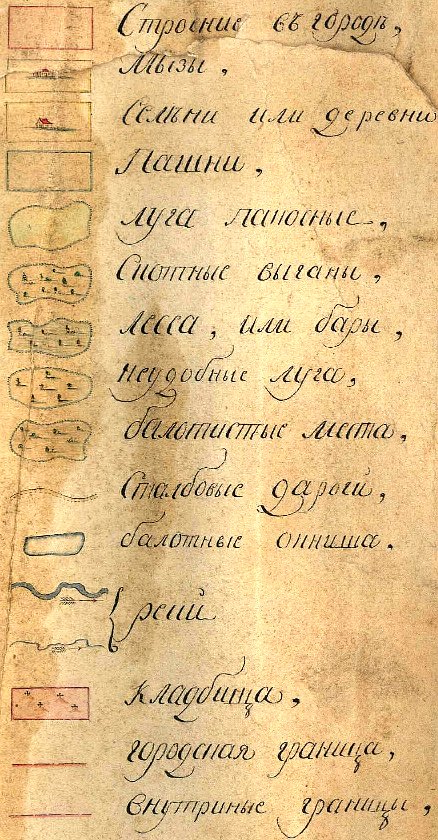 Строение въ городѣ,
Мызы,
Селѣни или деревни
Пашни,
луга паносные,
Скотные выганы,
лесса, или бары,
неудобные луга,
балотистые места,
Сталбовые дароги,
балотные окнишa.
реки
кладбища,
городская граница,
внутриные границы,